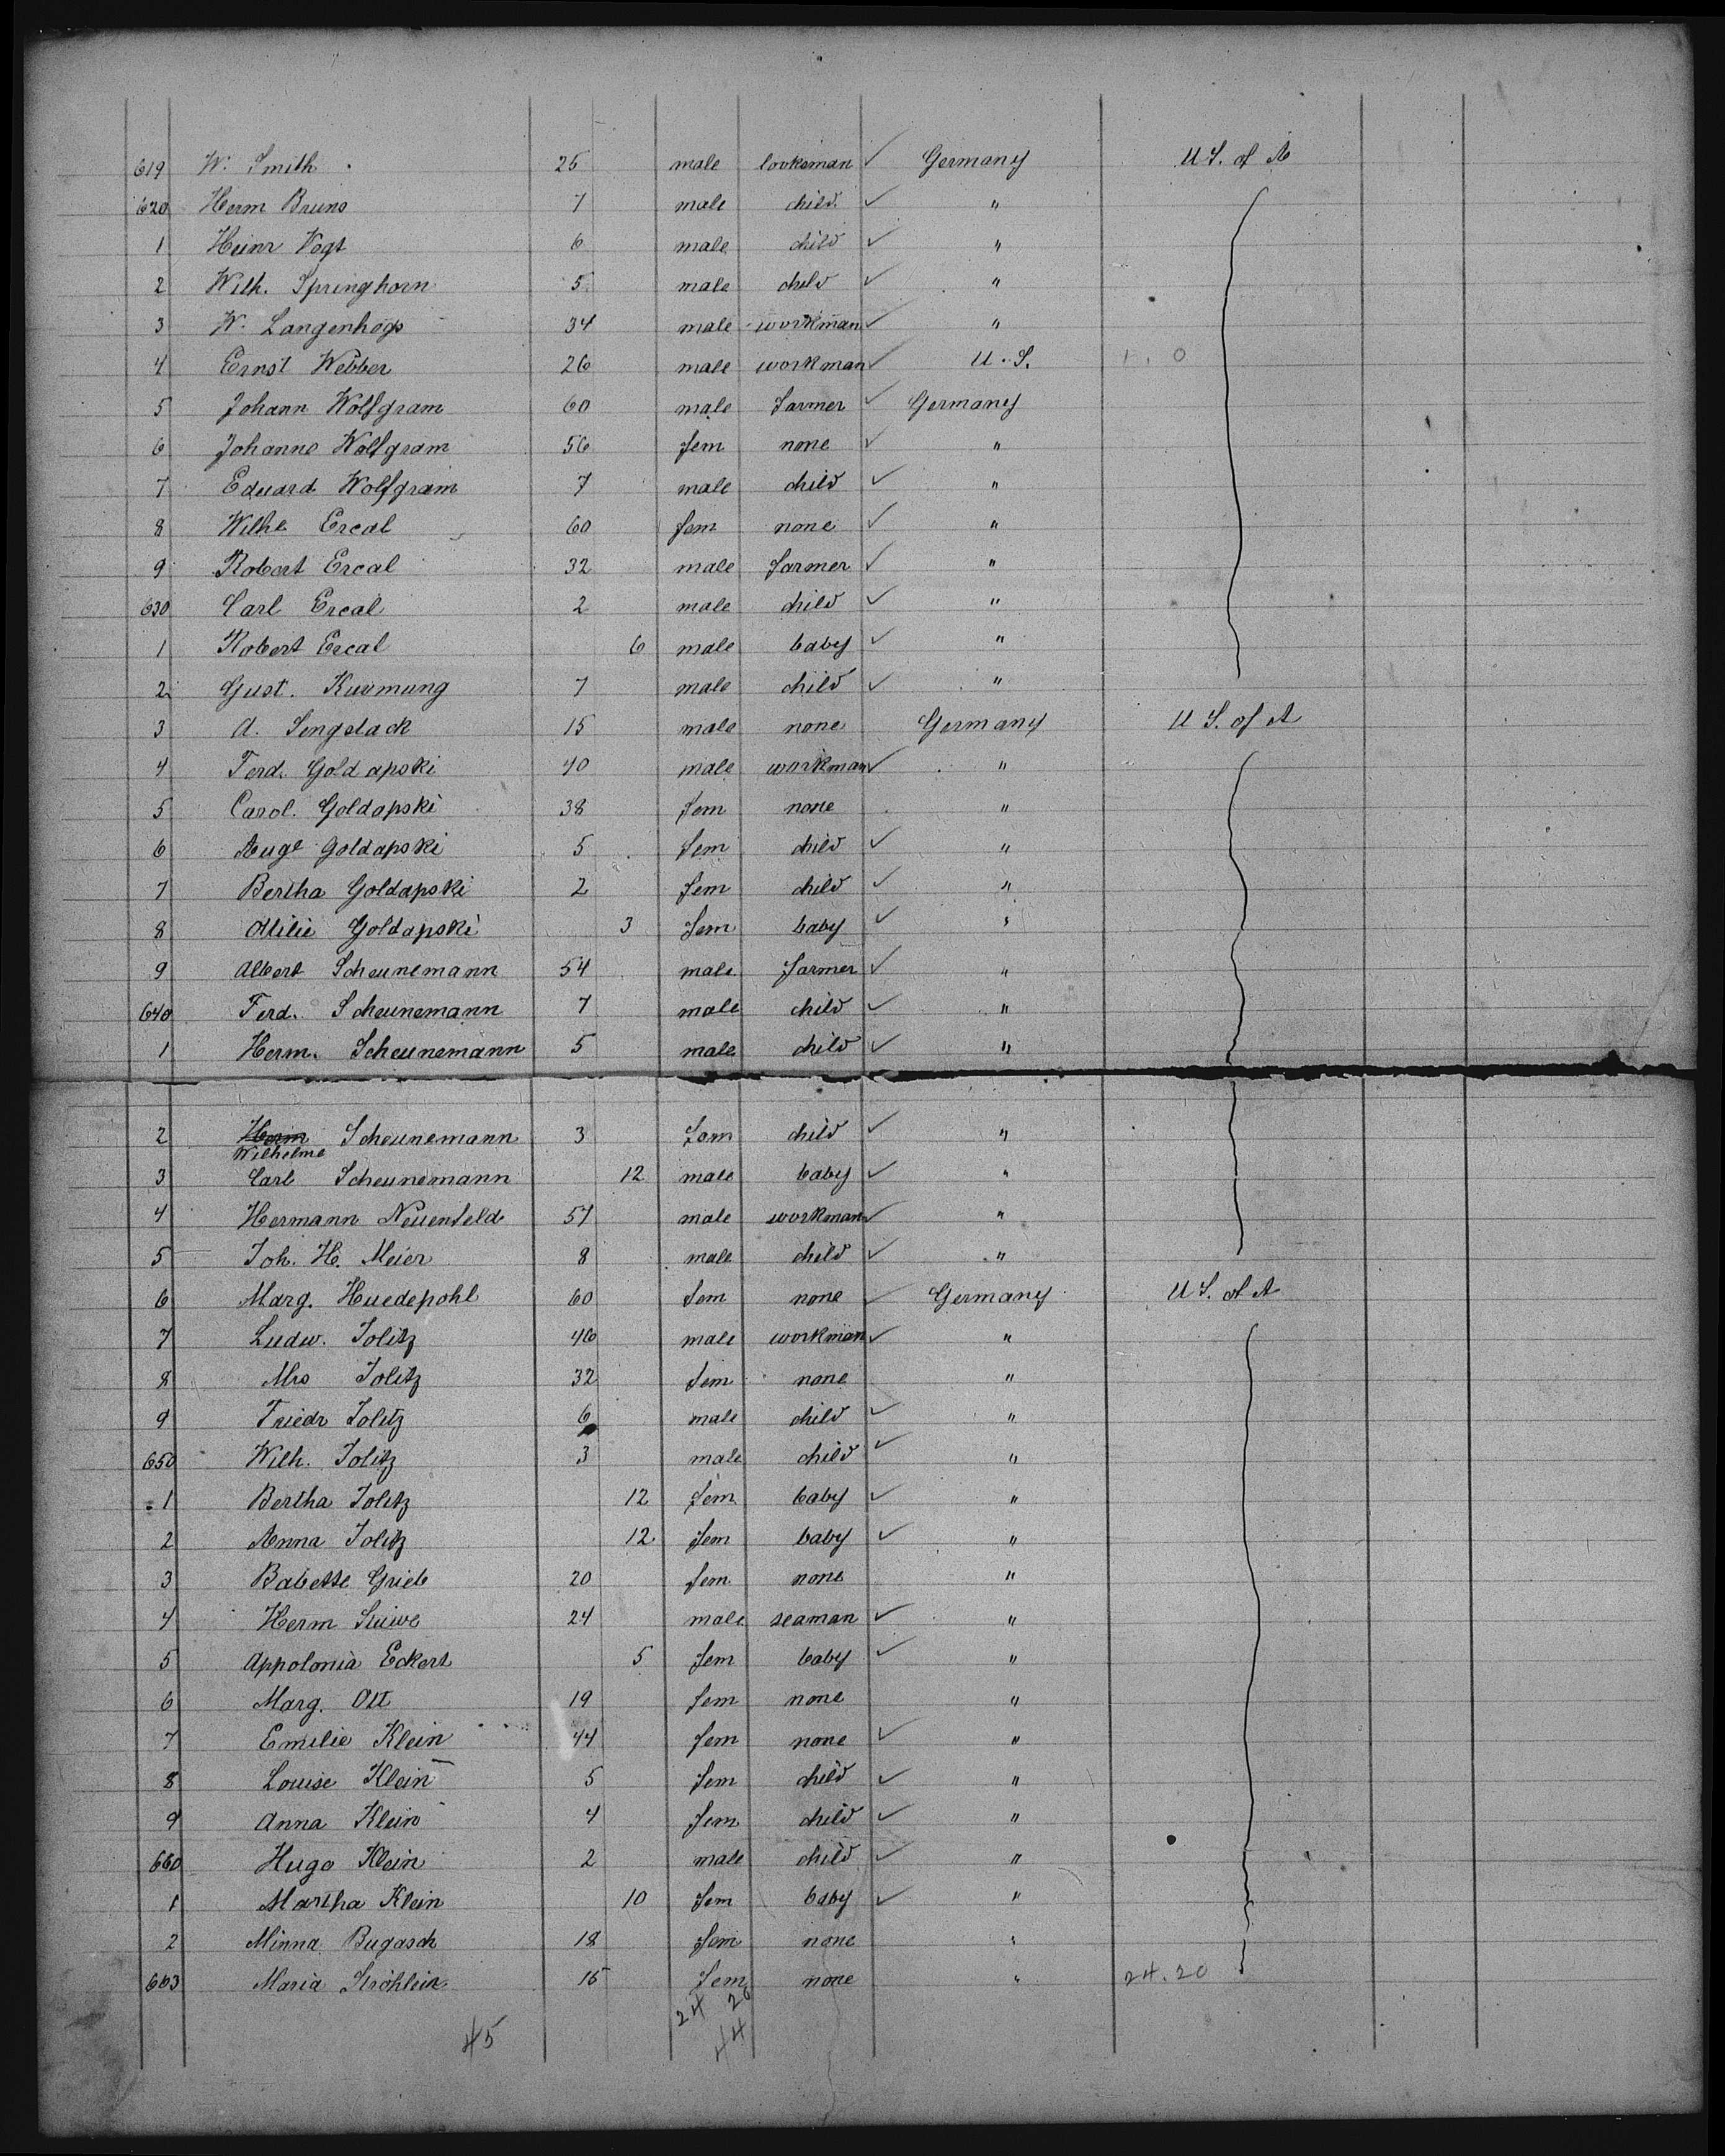 619 W. Smith 25 male looksman ✓ Germany U S. of A
620 Herm Bruno 7 male child ✓ "
1 Heinr Vogt 6 male child ✓ "
2 Wilh. Springhorn 5 male child ✓ "
3 W. Langenhop 34 male workman ✓ "
4 Ernst Webber 26 male workman ✓ U. S. 1. 0
5 Johann Wolfgram 60 male farmer ✓ Germany
6 Johanne Wolfgram 56 fem none ✓ "
7 Eduard Wolfgram 7 male child ✓ "
8 Wilhe Ercal 60 fem none ✓ "
9 Robert Ercal 32 male farmer ✓ "
630 Carl Ercal 2 male child ✓ "
1 Robert Ercal 6 male baby ✓ "
2 Gust. 7 male child ✓ "
3 A. Sengstack 15 male none Germany U S. of A
4 Ferd. Goldapski 40 male workman ✓ "
5 Carol. Goldapski 38 fem none "
6 Auge Goldapski 5 fem child ✓ "
7 Bertha Goldapski 2 fem child ✓ "
8 Ottilie Goldapski 3 fem baby ✓ "
9 Albert Scheunemann 54 male farmer ✓ "
640 Ferd. Scheunemann 7 male child ✓ "
1 Herm. Scheunemann 5 male child ✓ "
2 Herm Scheunemann 3 fem child ✓ "
Wilhelme
3 Carl Scheunemann 12 male baby ✓ "
4 Hermann Neuenfeld 57 male workman ✓ "
5 Joh. H. Meier 8 male child ✓ "
6 Marg. Huedepohl 60 fem none ✓ Germany U S. of A
7 Ludw. Jolitz 46 male workman ✓ "
8 Mrs Jolitz 32 fem none "
9 Friedr Jolitz 6 male child ✓ "
650 Wilh. Jolitz 3 male child ✓ "
1 Bertha Jolitz 12 fem baby ✓ "
2 Anna Jolitz 12 fem baby ✓ "
3 Babette Grieb 20 fem none "
4 Herm 24 male seaman ✓ "
5 Appolonia Eckert 5 fem baby ✓ "
6 Marg. Ott 19 fem none "
7 Emilie Klein 44 fem none ✓ "
8 Louise Klein 5 fem child ✓ "
9 Anna Klein 4 fem child ✓ "
660 Hugo Klein 2 male child ✓ "
1 Martha Klein 10 fem baby ✓ "
2 Minna Bugasch 18 fem none "
663 Maria Ströhlein 15 fem none " 24. 20
24 20
45 44